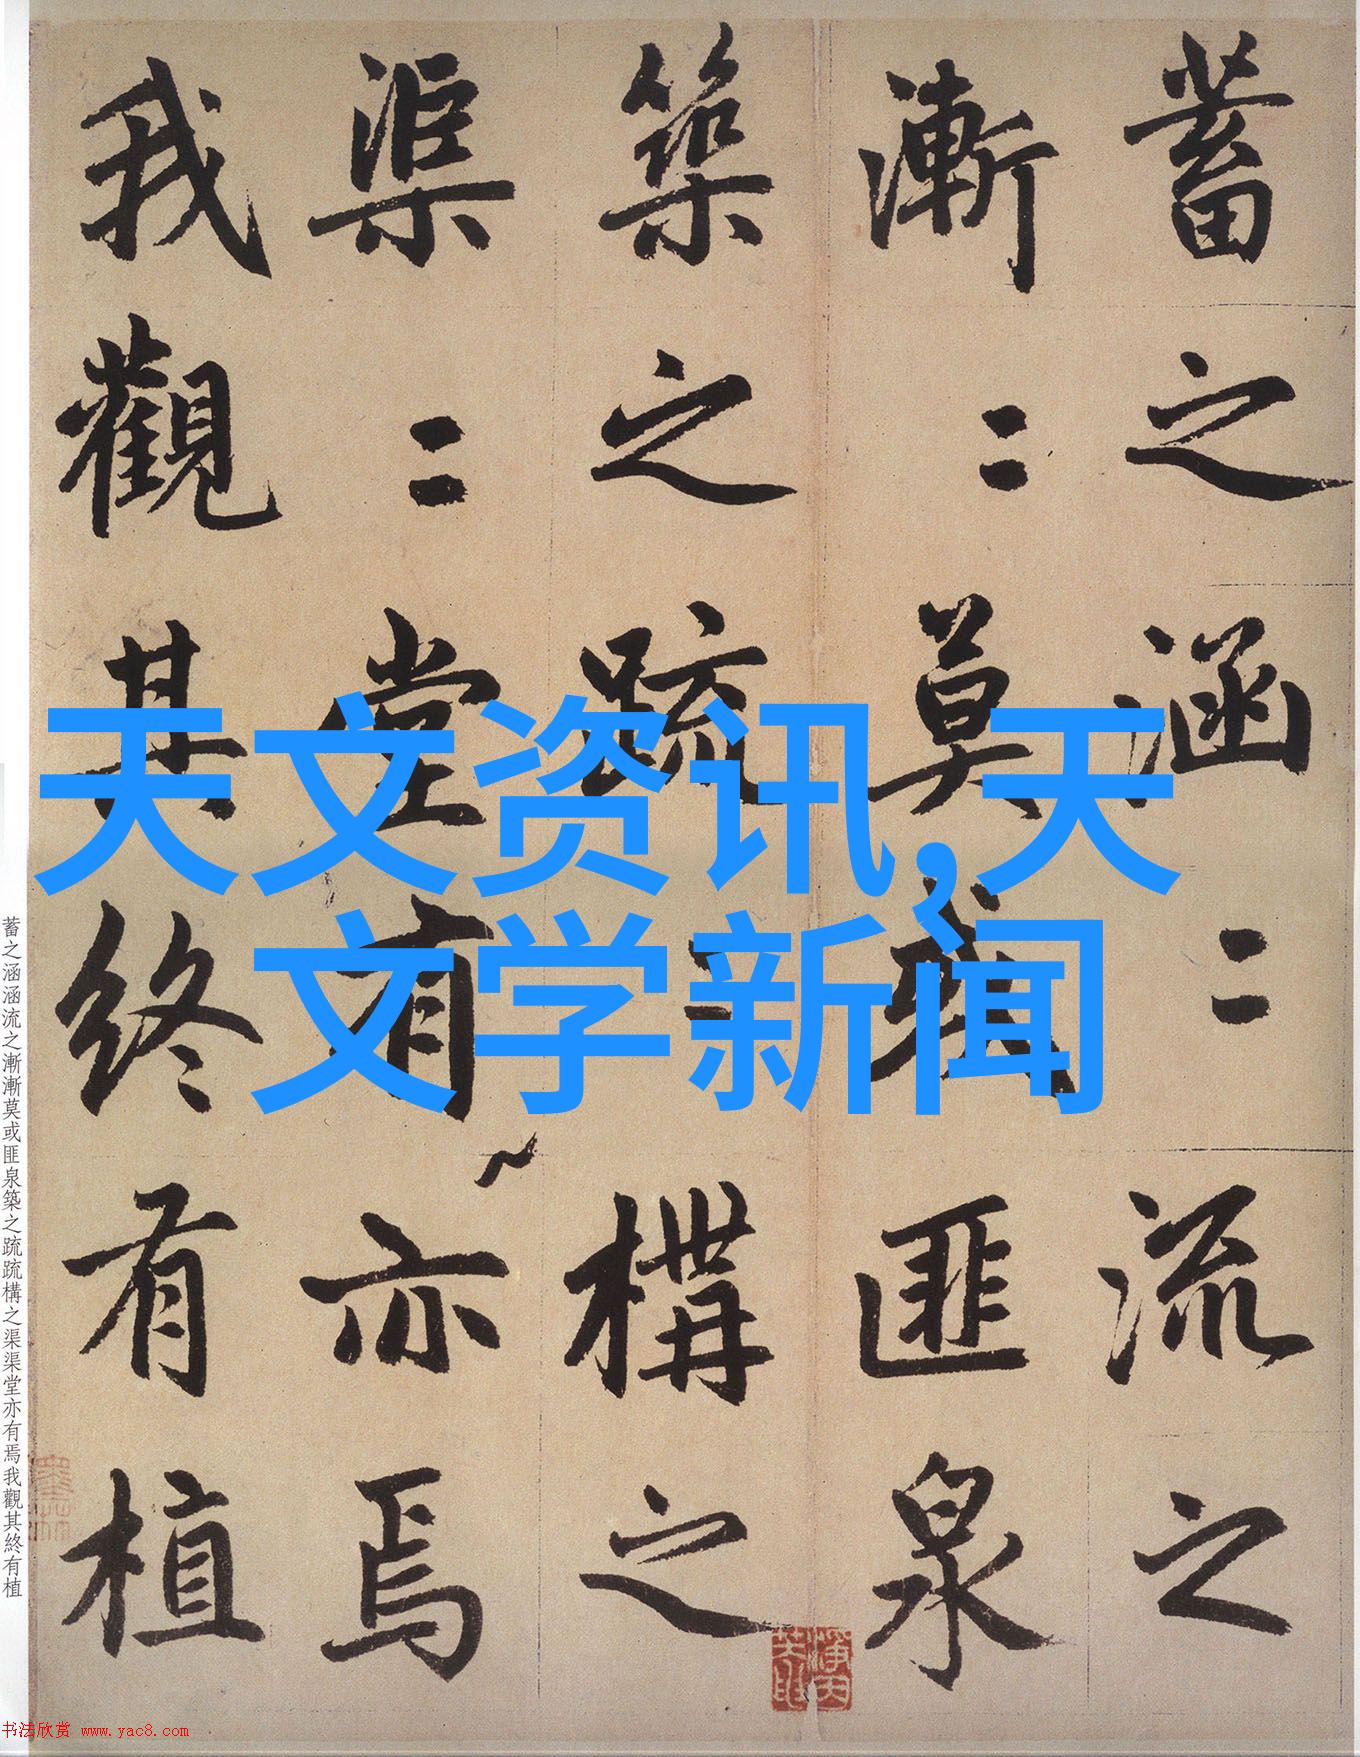 蓄之涵〻流之
漸〻莫或匪泉
築之疏〻構之
渠〻堂有亦焉
我觀其終有植
天文资讯,天
文学新闻
蓄之涵涵流之漸漸莫或匪泉築之疏疏構之渠渠堂亦有焉我觀其終有植
书法欣赏 www.yac8.com